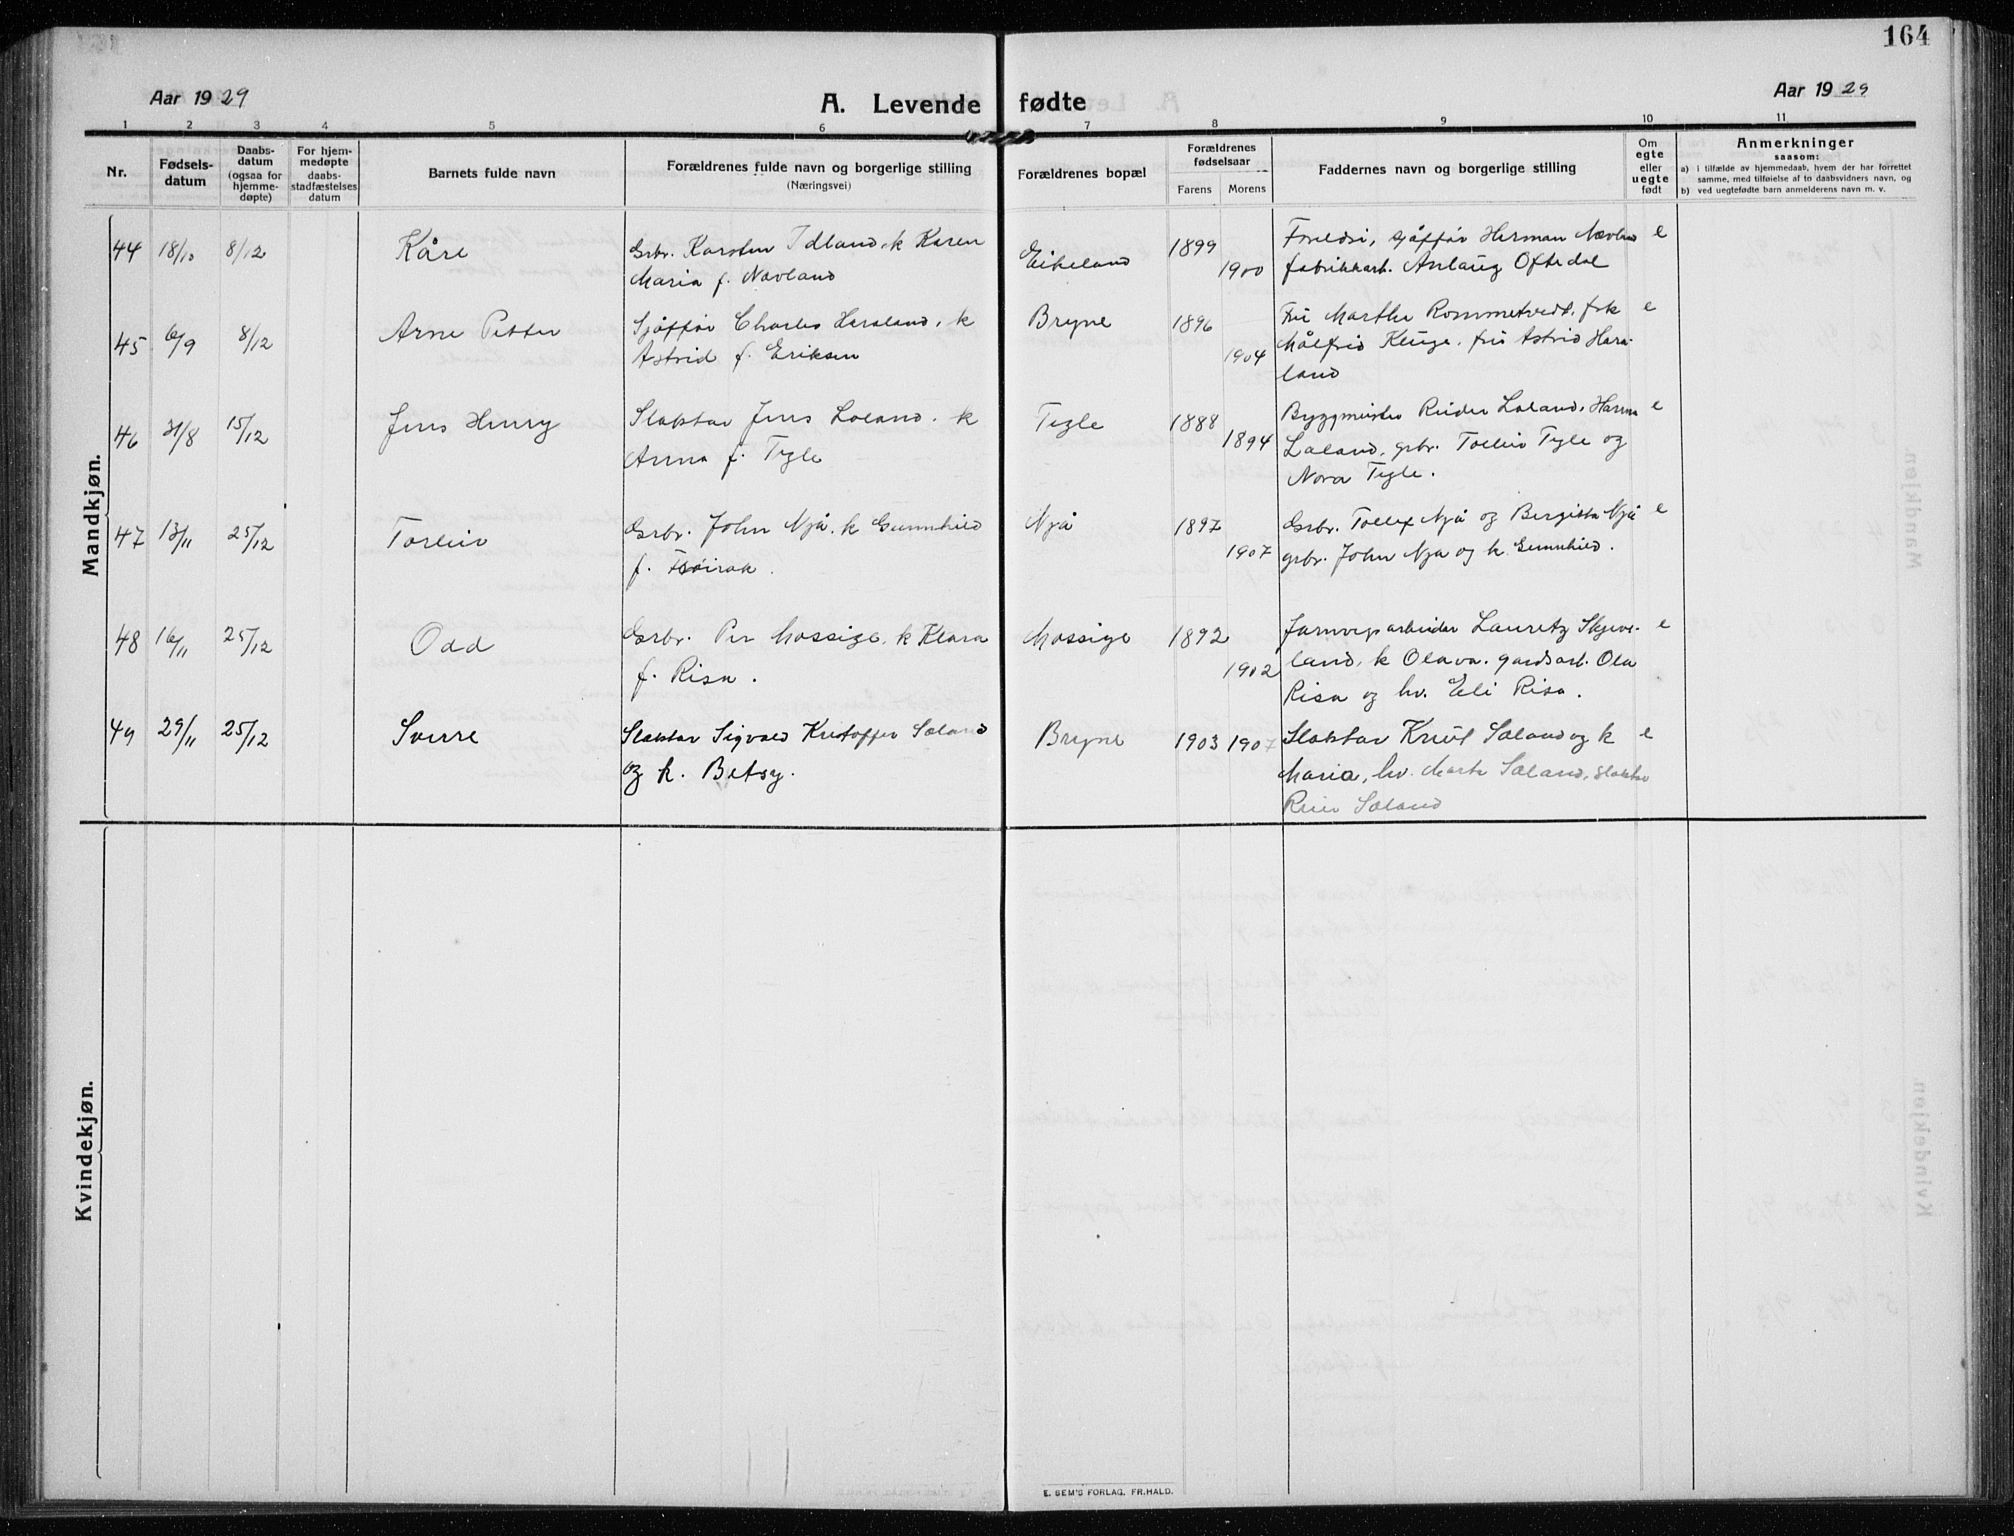 164
Aar 1929
A. Levende fødte
Aar 1929
1 2 3 4 5 6 7 8 9 10 11
Nr.
Fødsels-
datum
Daabs-
datum
(ogsaa for
hjemme-
døpte)
For hjem-
medøpte
daabs-
stadfæstelses
datum
Barnets fulde navn
Forældrenes fulde navn og borgerlige stilling
(Næringsvei)
Forældrenes bopæl
Forældrenes
fødselsaar
Farens Morens
Faddernes navn og borgerlige stilling
Om
egte
eller
uegte
født
Anmerkninger
saasom:
a) i tilfælde av hjemmedaab, hvem der har forrettet
samme, med tilføielse af to daabsvidners navn, og
b) ved uegtefødte barn anmelderens navn m. v.
Mandkjøn.
44 18/10 8/12 Kåre
Grbr. Karsten Idland, k Karen
Maria f. Nævland
Eikeland 1899 1900
Foreldri, sjåffør Herman Nævland
fabrikkarb. Anlaug Oftedal
e
45 6/9 8/12 Arne Petter
Sjåffør Charles Haraland, k
Astrid f. Eriksen
Bryne 1896 1904
Fru Marthe Rommetvedt, frk
Målfrid Kluge, fru Astrid Hara-
land
e
46 31/8 15/12 Jens Henry
Slaktar Jens Laland, k
Anna f. Tygle
Tygle 1888 1894
Byggmeister Reider Laland, Hanna
Laland, grbr. Tolleiv Tygle og
Nora Tygle.
e
47 13/11 25/12 Torleiv
Grbr. John Njå, k Gunnhild
f. Frøirak.
Njå 1897 1907
Grbr. Tollef Njå og Bergitta Njå
grbr. John Njå og k. Gunnhild.
e
48 16/11 25/12 Odd
Grbr. Per Mossige, k Klara
f. Risa.
Mossige 1892 1902
Jarnvegsarbeider Lauretz Skjeve-
land, k Olava, gardsarb. Ola
Risa og hv. Eli Risa.
e
49 29/11 25/12 Sverre
Slaktar Sigvald Kristoffer Sæland
og k. Betsy.
Bryne 1903 1907
Slaktar Knut Sæland og k
Maria, hv. Marta Sæland, slaktar
Sæland
e
Kvindekjøn.
E. SEM'S FORLAG, FR.HALD.